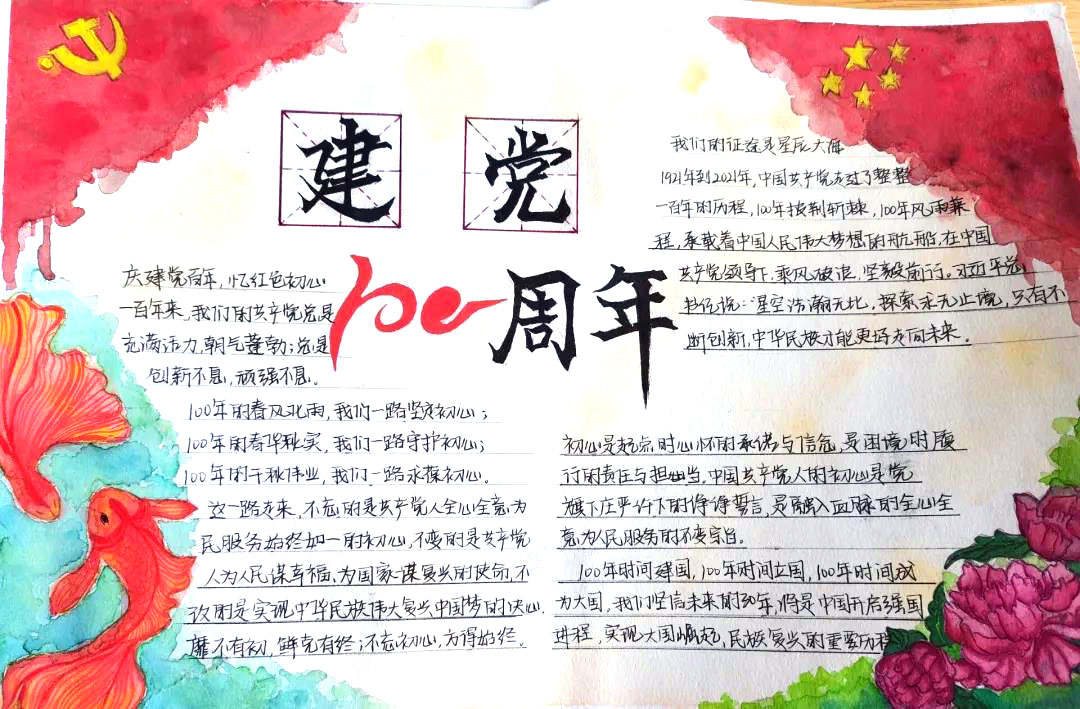 建 党
100周年
庆建党百年，忆红色初心
一百年来，我们的共产党总是
充满活力，朝气蓬勃；总是
创新不息，顽强不息。
100年的春风化雨，我们一路坚定初心；
100年的春华秋实，我们一路守护初心；
100年的千秋伟业，我们一路永葆初心。
这一路走来，不忘的是共产党人全心全意为
民服务始终如一的初心，不变的是共产党
人为人民谋幸福，为国家谋复兴的使命，不
改的是实现中华民族伟大复兴中国梦的决心.
靡不有初，鲜克有终；不忘初心，方得始终.
我们的征途是星辰大海
1921年到2021年，中国共产党走过了整整
一百年的历程，100年披荆斩棘，100年风雨兼
程，承载着中国人民伟大梦想的航船，在中国
共产党领导下，乘风破浪，坚毅前行。习近平总
书记说：星空浩瀚无比，探索永无止境，只有不
断创新，中华民族才能更好走向未来。
初心是起点时心怀的承诺与信念，是困境时履
行的责任与担当，中国共产党人的初心是党
旗下庄严许下的铮铮誓言，是融入血脉的全心全
意为人民服务的不变宗旨。
100年时间建国，100年时间立国，100年时间成
为大国，我们坚信未来的30年，将是中国开启强国
进程，实现大国崛起，民族复兴的重要历程